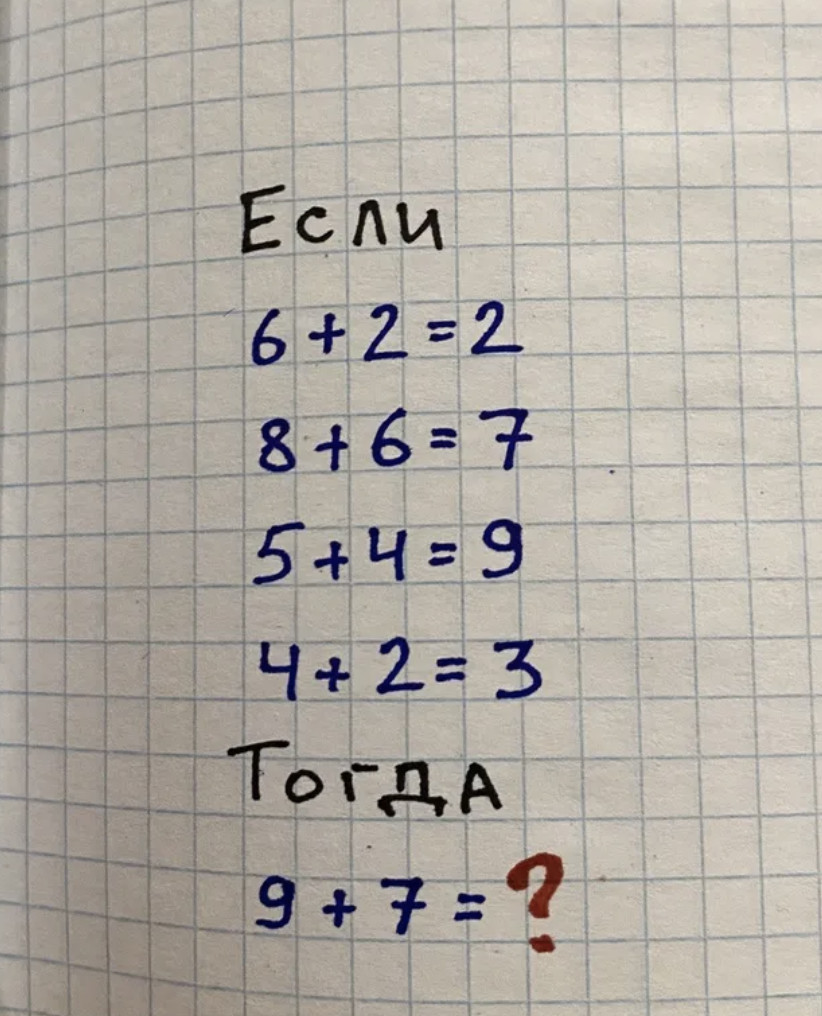 Если
6 + 2 = 2
8 + 6 = 7
5 + 4 = 9
4 + 2 = 3
Тогда
9 + 7 = ?